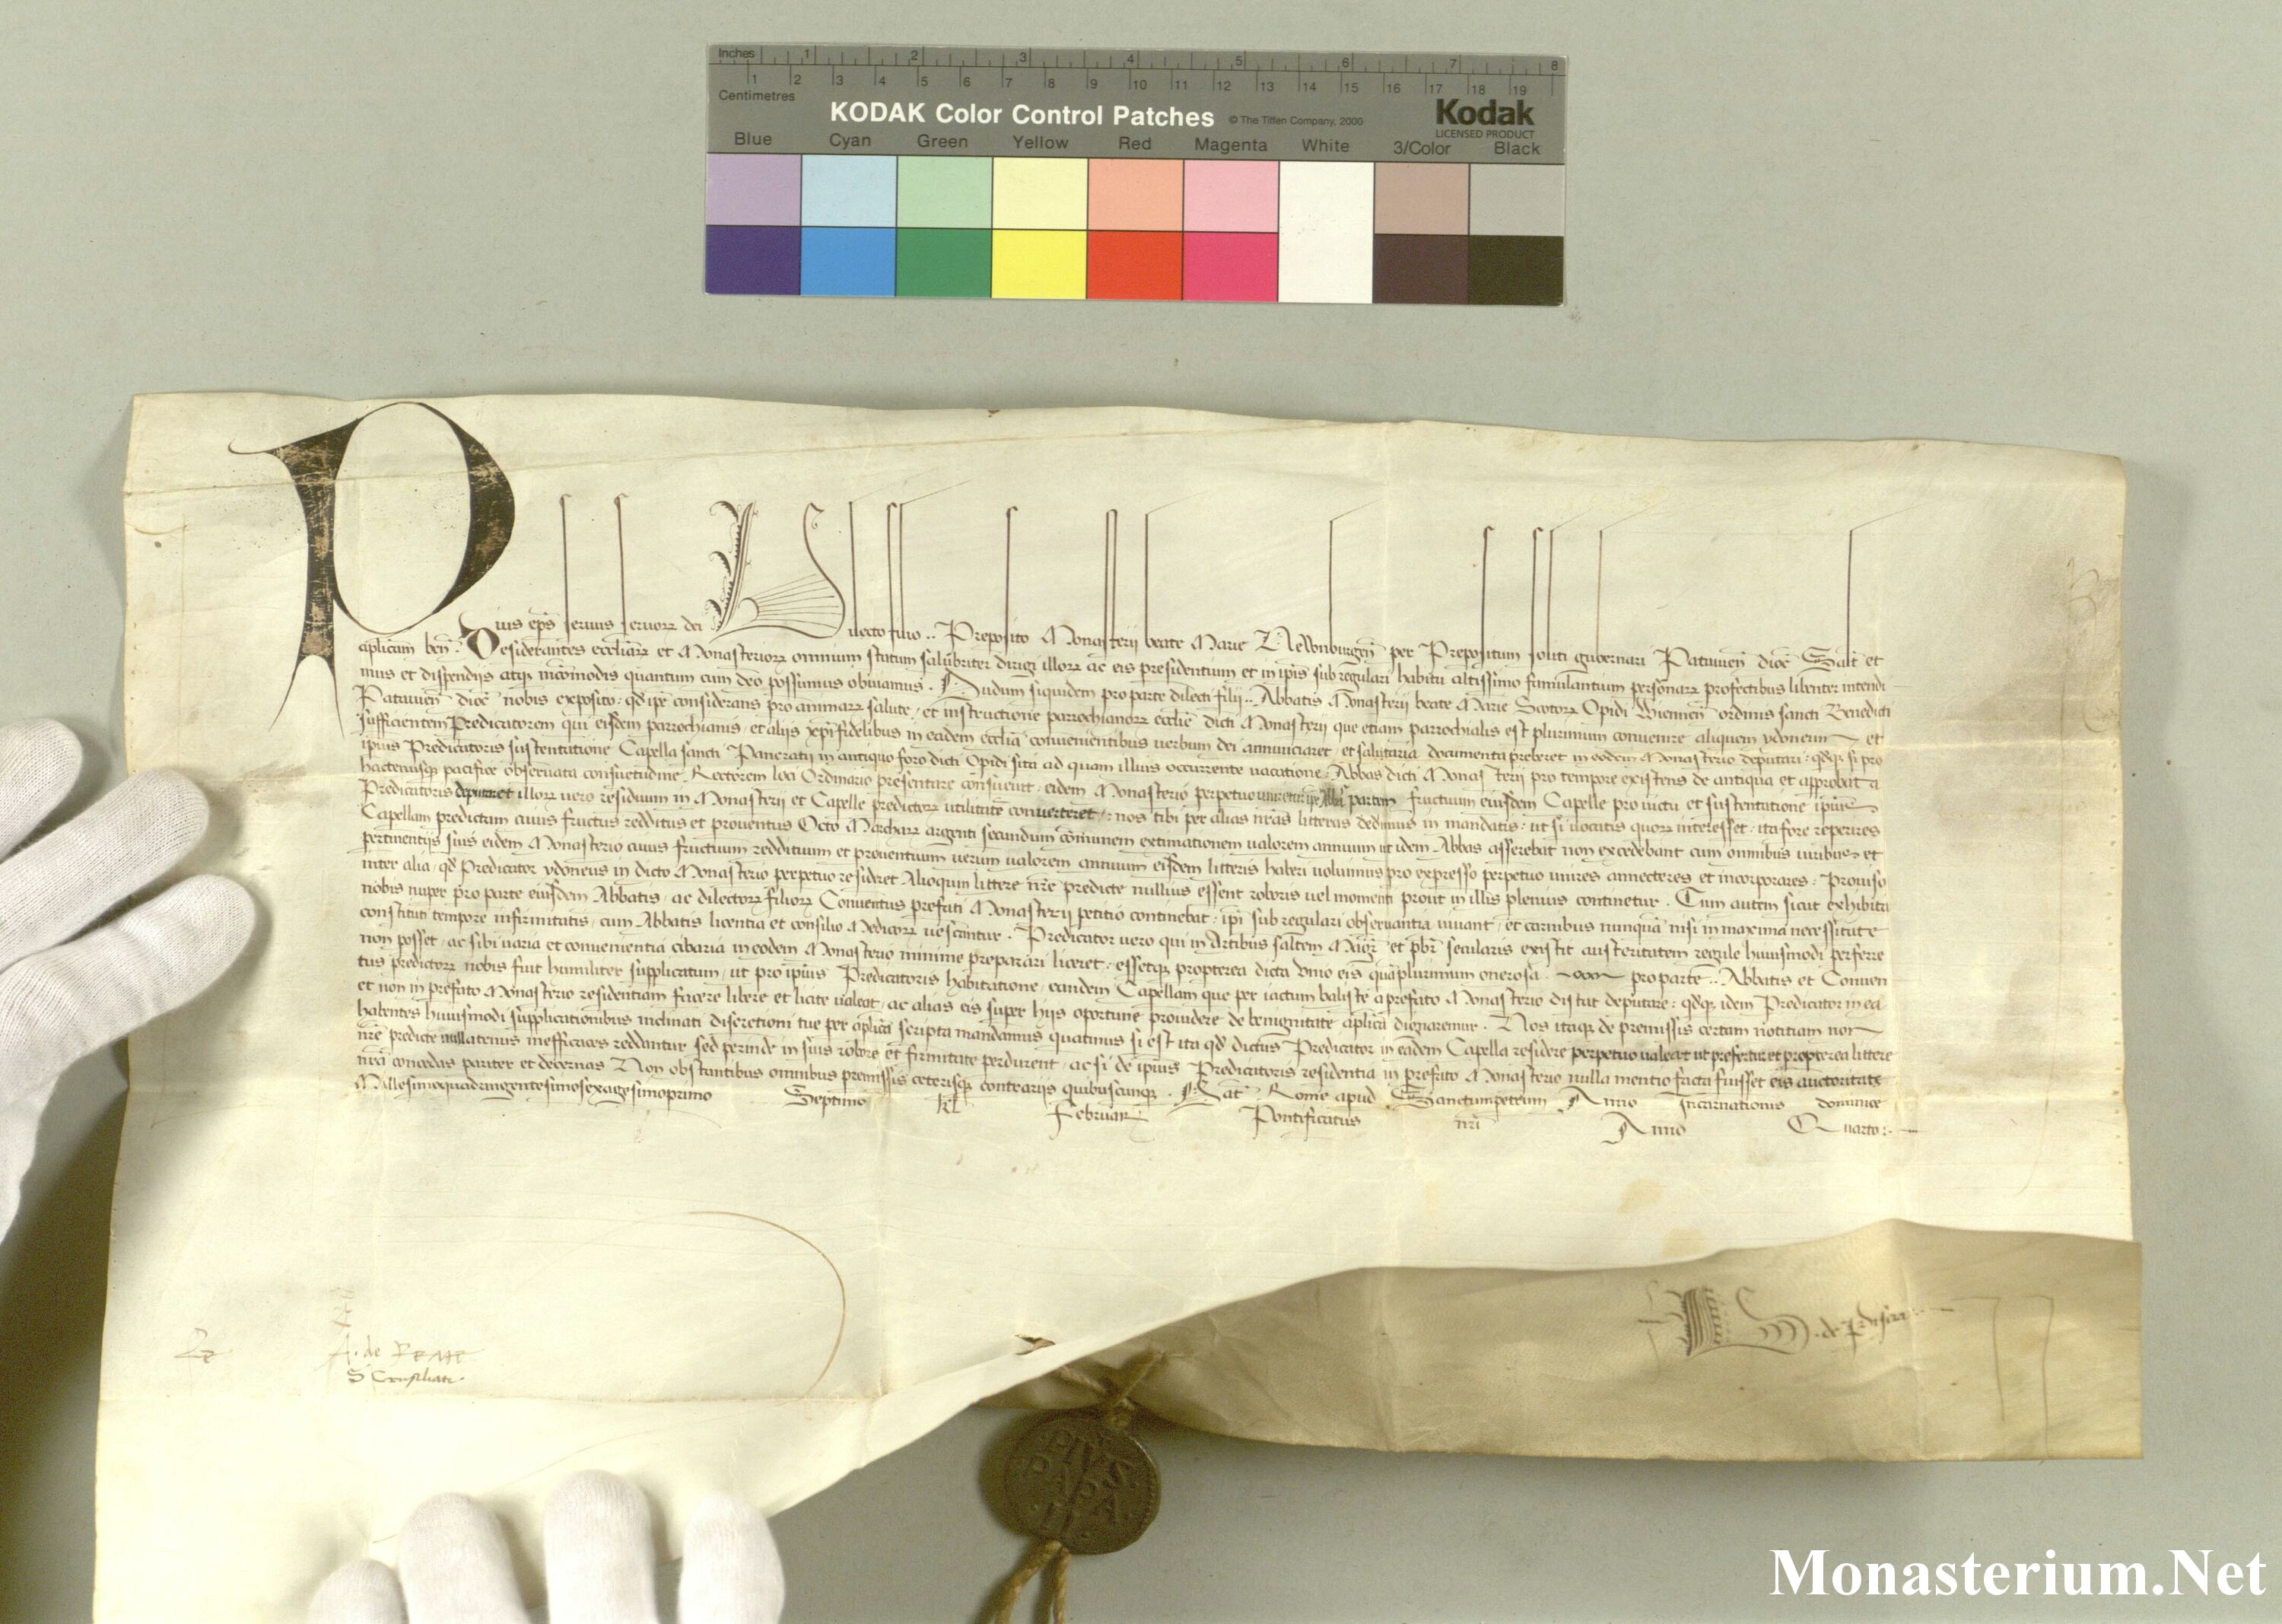 Inches 1 2 3 4 5 6 7 8
1 2 3 4 5 6 7 8 9 10 11 12 13 14 15 16 17 18 19
Centimetres
KODAK Color Control Patches © The Tiffen Company, 2000 Kodak
LICENSED PRODUCT
Blue Cyan Green Yellow Red Magenta White 3/Color Black
Pius ep̄s servus servoꝝ dei Dilecto filio .. Preposito Monasterii beate Marie Newnburgeñ per Prepositum soliti gubernari Patavieñ dioc̄ Salt̄ et
aplicam ben̄. Desiderantes ecclīarꝝ et Monasterioꝝ omnium statum salubriter dirigi illoꝝ ac eis presidentium et in ip̄is sub regulari habitu altissimo famulantium personarꝝ profectibus libenter intendi
mus et dispendijs atqꝫ incōmodis quantum cum deo possumus obviamus. Dudum siquidem pro parte dilecti filij .. Abbatis Monasterij beate Marie Scotoꝝ Opidi Wienneñ ordinis sancti Benedicti
Patavieñ dioc̄ nobis exposito. qd̄ ip̄e considerans pro animarꝝ salute, et instructione parrochianoꝝ ecclīe dicti Monasterij que etiam parrochialis est plurimum convenire aliquem ydoneum et
sufficientem Predicatorem qui eisdem parrochianis, et aliis xp̄ifidelibus in eadem ecclīa convenientibus verbum dei annunciaret, et salutaria documenta preberet in eodem Monasterio deputari. qdqꝫ si pro
ipius Predicatoris sustentatione Capella sancti Pancratij in antiquo foro dicti Opidi sita ad quam illius occurrente vacatione, Abbas dicti Monasterij pro tempore existens de antiqua et approbata
hactenusqꝫ pacifice observata consuetudine, Rectorem loci Ordinario presentare consuevit, eidem Monasterio perpetuo uniretur ipe Abbas partem fructuum eiusdem Capelle pro victu et sustentatione ipius
Predicatoris deputaret illoꝝ vero residuum in Monasterij et Capelle predictoꝝ utilitatē converteret. nos tibi per alias nr̄as litteras dedimus in mandatis. ut si vocatis quoꝝ interesset. ita fore reperires
Capellam predictam cuius fructus redditus et proventus Octo Marcharꝝ argenti secundum cōmunem extimationem valorem annuum ut idem Abbas asserebat non excedebant cum omnibus iuribus et
pertinentijs suis eidem Monasterio cuius fructuum reddituum et proventuum verum valorem annuum eisdem litteris haberi voluimus pro expresso perpetuo unires annecteres et incorporares. Proviso
inter alia. qd̄ Predicator ydoneus in dicto Monasterio perpetuo resideret Alioquin littere nr̄e predicte nullius essent roboris vel momenti prout in illis plenius continetur. Cum autem sicut exhibita
nobis nuper pro parte eiusdem Abbatis, ac dilectoꝝ filioꝝ Conventus prefati Monasterij petitio continebat. ip̄i sub regulari observantia vivant, et carnibus nunquā nisi in maxima necessitate
constituti tempore infirmitatis, cum Abbatis licentia et consilio Medicoꝝ vescantur. Predicator vero qui in Artibus saltem Magr̄ et pbr̄ secularis existit austeritatem regule huiusmodi perferre
non posset, ac sibi varia et convenientia cibaria in eodem Monasterio minime preparari liceret. essetqꝫ propterea dicta Unio eis quāplurimum onerosa. pro parte .. Abbatis et Conven
tus predictoꝝ nobis fuit humiliter supplicatum, ut pro ipius Predicatoris habitatione, eandem Capellam que per iactum baliste a prefato Monasterio distat deputare. qdqꝫ idem Predicator in ea
et non in prefato Monasterio residentiam facere libere et licite valeat, ac alias eis super hijs oportune providere de benignitate aplīca dignaremur. Nos itaqꝫ de premissis certam notitiam non
habentes huiusmodi supplicationibus inclinati discretioni tue per aplīca scripta mandamus quatinus si est ita qd̄ dictus Predicator in eadem Capella residere perpetuo valeat ut prefertur et propterea littere
nr̄e predicte nullatenus inefficaces reddantur sed perinde in suis robore et firmitate perdurent, ac si de ipius Predicatoris residentia in prefato Monasterio nulla mentio facta fuisset eis auctoritate
nr̄a concedas pariter et decernas Non obstantibus omnibus premissis ceterisqꝫ contrarijs quibuscunqꝫ. Dat̄ Rome apud Sanctumpetrum Anno Incarnationis dominice
Millesimoquadringentesimosexagesimoprimo Septimo kl̄ Februarij Pontificatus nr̄i Anno Quarto.
A. de
PIVS
PAPA
.II.
Monasterium.Net